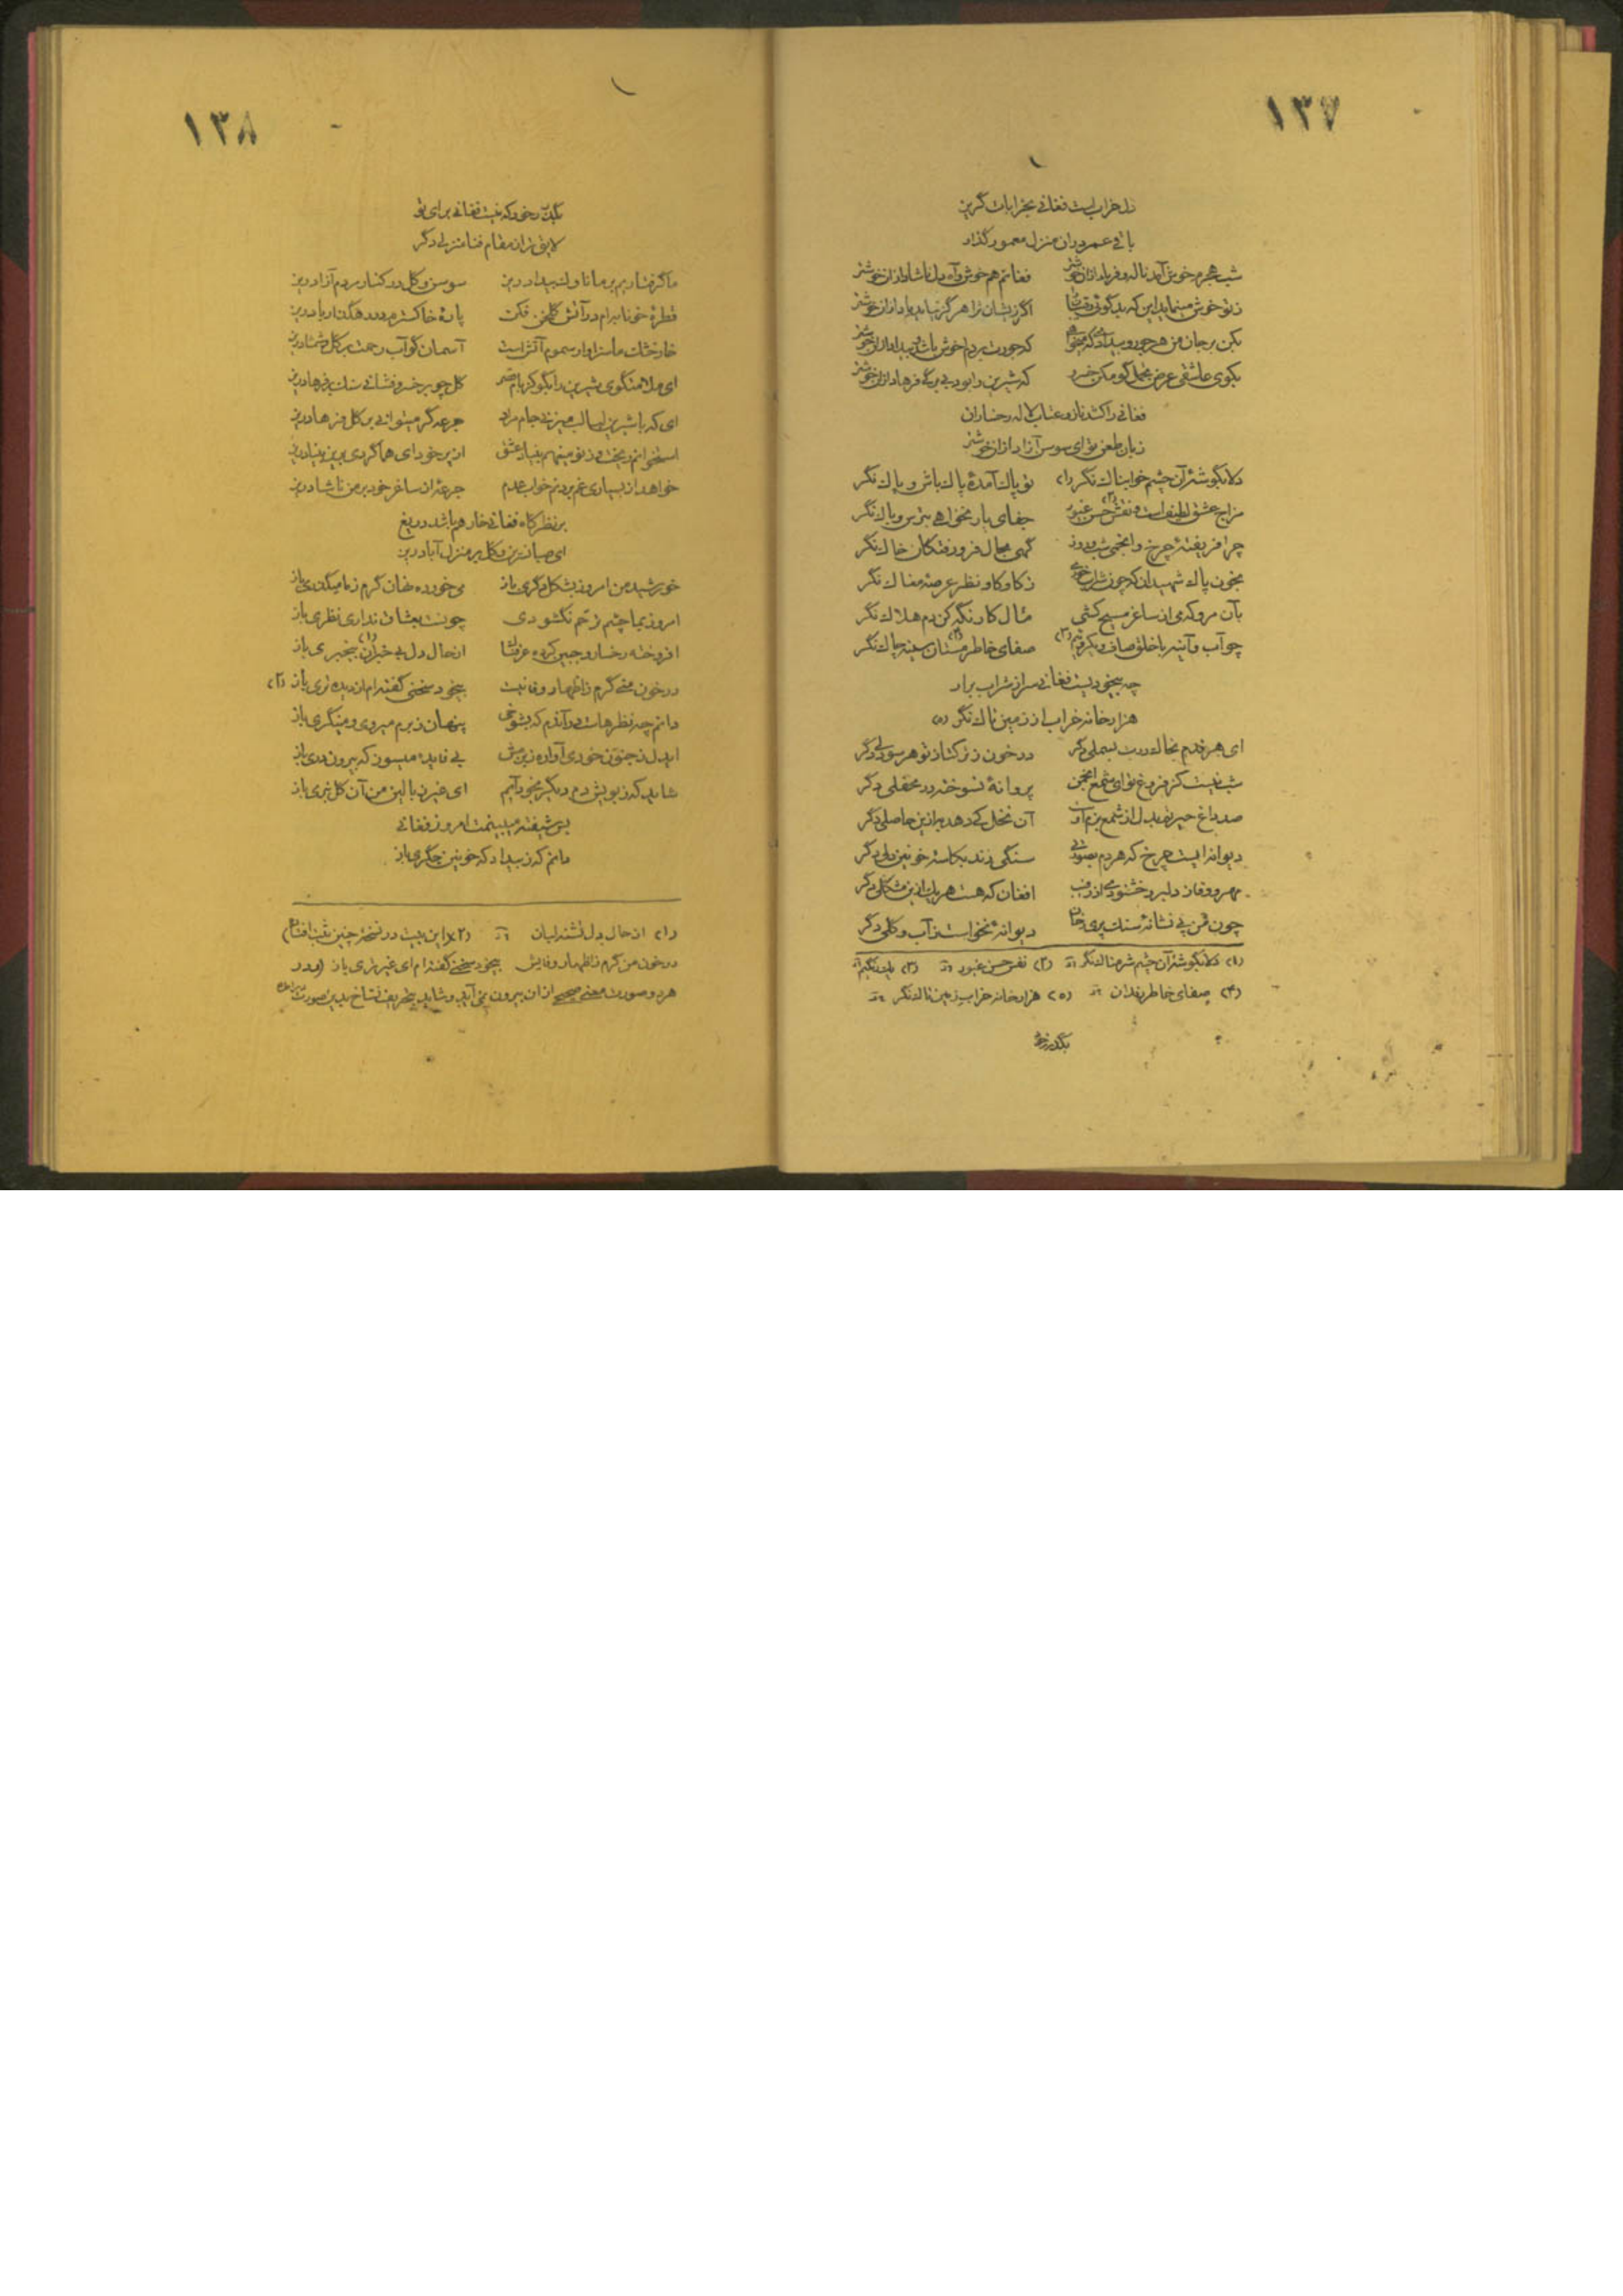 ۱۳۷
دل خراب است فغانی بخرابات گریز
باقی عمر در ان منزل معمور گذار
شب هجرم خوش آمد ناله و فریاد ازان خوشتر
فغانم هم خوش و آه دل ناشاد ازان خوشتر
ز تو خوش مینماید این که بدگوئی رقیبان را
اگر زیشان ترا هرگز نیاید یاد ازان خوشتر
بکن بر جان من هر جور و بیدادی که میخواهی
که جورت بر دلم خوش باشد و بیداد ازان خوشتر
بکوی عاشقی عرض تجمل گو مکن خسرو
که شیرین را بود بی برگی فرهاد ازان خوشتر
فغانی را کشد ناز و عتاب لاله رخساران
زبان طعن تو ای سوسن آزاد ازان خوشتر
دلا بگوشۀ آن چشم خوابناک نگر (۱)
تو پاک آمدۀ پاک باش و پاک نگر
مزاج عشق لطیف است و نفس حسن غیور (۲)
جفای یار نخواهی بترس و پاک نگر
چرا فریفتۀ چرخ و انجمی شب و روز
گهی بحال فرو رفتگان خاک نگر
بخون پاک شهیدان که چون شراب خوری
ز کاو کاو نظر عرصۀ مغاک نگر
بآن مرو که می از ساغر مسیح کشی
مآل کار نگه کن دم هلاک نگر
چو آب و آینه با خلق صاف و یکرو باش (۳)
صفای خاطر مستان سینه چاک نگر (۴)
چه بیخودیست فغانی سر از شراب برار
هزار خانه خراب از زمین تاک نگر (۵)
ای هر قدم بخاک درت بسملی دگر
در خون ز ترکتاز تو هر سو دلی دگر
شب نیست کز فروغ تو ای شمع انجمن
پروانۀ نسوخته در محفلی دگر
صد داغ حیرتم بدل از شمع بزم اوست
آن نخل کی دهد به ازین حاصلی دگر
دیوانه ایست چرخ که هر دم بصورتی
سنگی زند بکاسۀ خونین دلی دگر
مهر و وفا ز دلبر و خشنودی از رقیب
افغان که هست هر یک ازین مشکلی دگر
چون من پی نشانۀ سنگ پریرخان
دیوانۀ نخواست ز آب و گلی دگر
(۱) دلا بگوشۀ آن چشم شرمناک نگر
(۲) نفس حسن غیور
(۳)
(۴) صفای خاطر رندان
(۵) هزار خانه خراب زمین تاک نگر
بگذر ز خود
۱۳۸
بگذر ز خود که نیست فغانی برای تو
لایق تر از مقام فنا منزلی دگر
ما گرفتاریم بر ما ناوک بیداد ریز
سوسن و گل در کنار مردم آزاد ریز
قطرۀ خونابه ام در آتش گلخن فکن
پارۀ خاکسترم در رهگذار باد ریز
خار خشک ما سزاوار سموم آتش است
آسمان گو آب رحمت بر گل و شمشاد ریز
ای ملامتگوی شیرین را بگو کز بام قصر
گل چو بر خسرو فشانی سنگ بر فرهاد ریز
ای که با شیرین لبان لب میزنی جام مراد
جرعه گر میتوانی بر گل فرهاد ریز
استخوانم ریخت و ز تو مینهم بنیاد عشق
از پر خود ای هما گردی برین بنیاد ریز
خواهد از بسیاری غم بردنم خواب عدم
جرعۀ از ساغر خود بر من ناشاد ریز
بر نظرگاه فغانی خار هم باشد دریغ
ای صبا نسرین و گل بر منزل آباد ریز
خورشید من امروز بشکل دگری باز
می خورده نهان گرم ز ما میگذری باز
امروز بما چشم ز خشم نگشودی
چونست که با ما نداری نظری باز
افروخته رخسار و جبین کرده عرقناک
از حال دل بی خبران بیخبری باز (۱)
در خون منی گرم ز اظهار وفا نیست
بیخود سخنی گفته ام از دیده تری باز (۲)
دانم چه نظرهاست در آندم که بشوخی
پنهان ز برم میروی و مینگری باز
ایدل ز جنون خودی آواره ز بزمش
بی فایده میسوز که بیرون دری باز
شاید که ز بویش دم دیگر بخود آیم
ای غیر ز بالین من آن گل نبری باز
بس شیفته میبینمت امروز فغانی
مانم که ز بیداد که خونین جگری باز
(۱) از حال دل تشنه لبان
(۲) این بیت در نسخه چنین ثبت افتاده
در خون من گرم ز اظهار وفایش
بیخود سخنی گفته ام ای غیر تری باز
هر دو صورت معنی صحیحی از ان بیرون نمی آید و شاید بتحریف نساخ بدین صورت